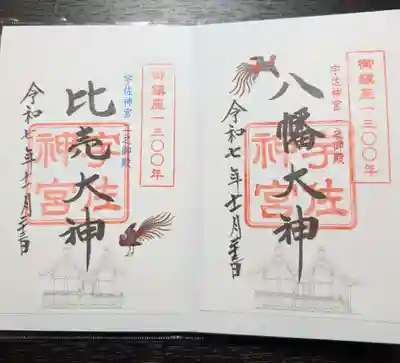 御鎮座一三〇〇年
宇佐神宮 一之御殿
八幡大神
宇佐神宮
令和七年十一月
御鎮座一三〇〇年
宇佐神宮 二之御殿
比売大神
宇佐神宮
令和七年十一月